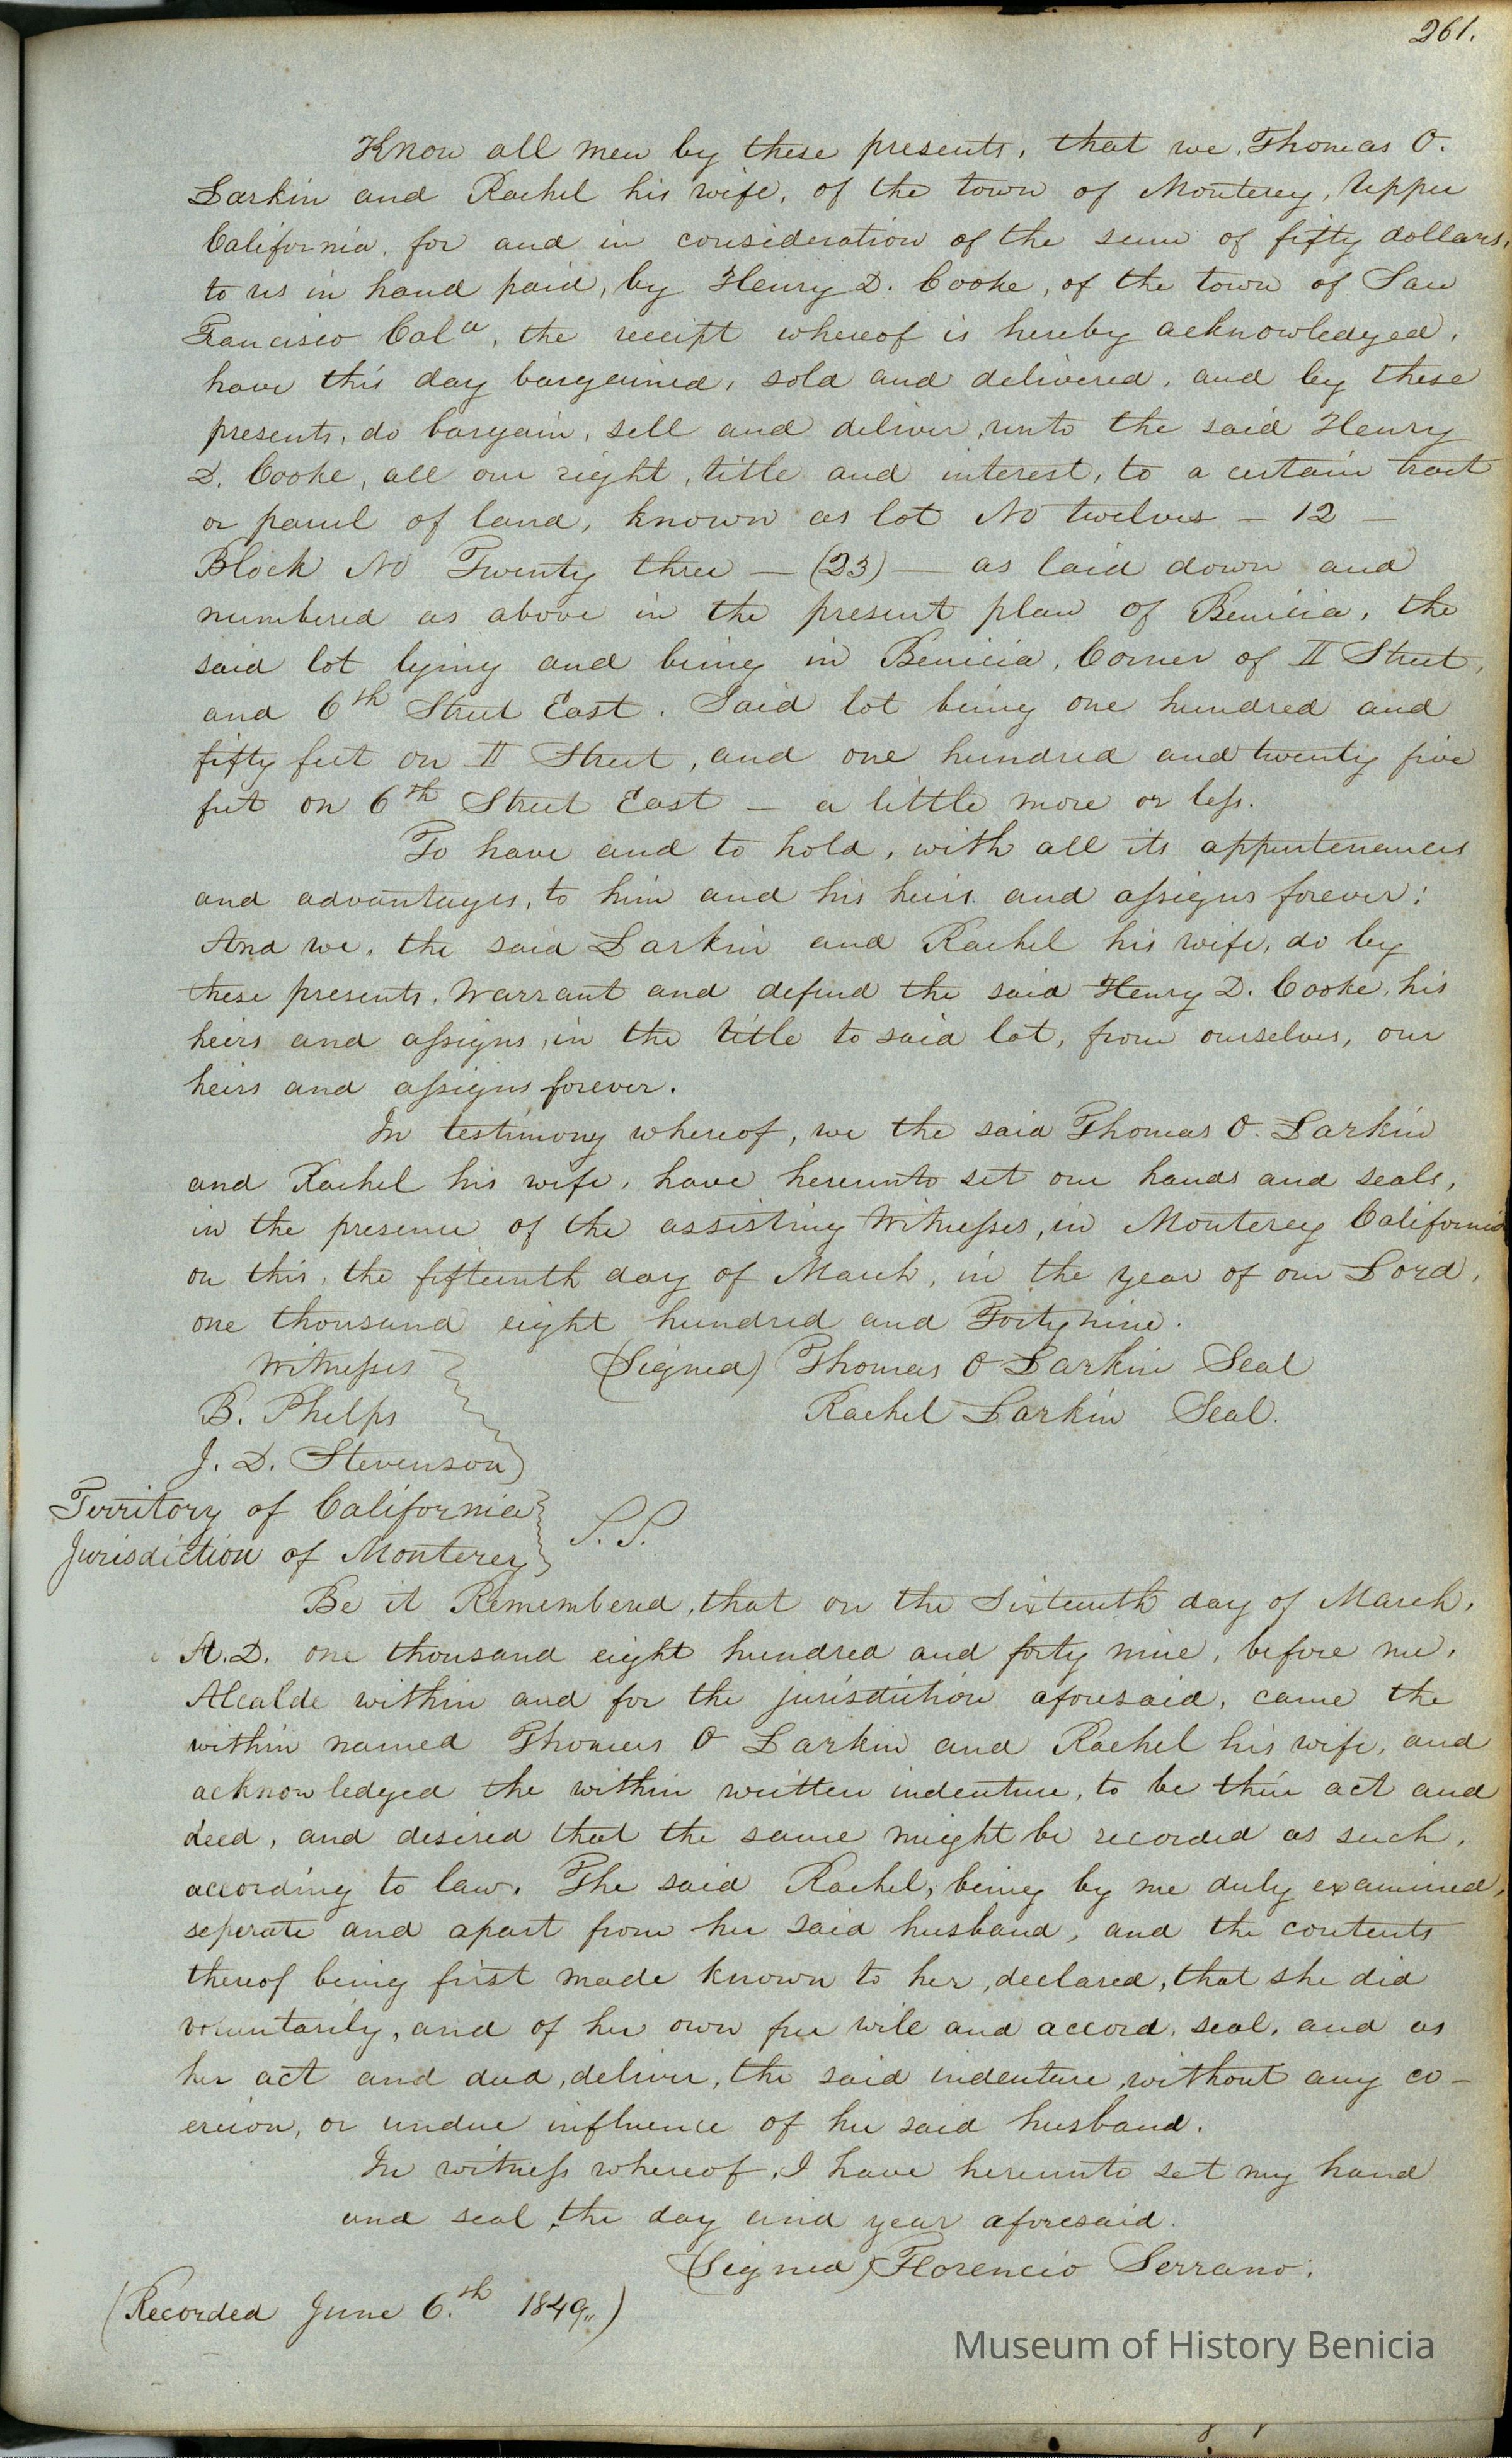 261.
Know all men by these presents, that we, Thomas O.
Larkin and Rachel his wife, of the town of Monterey, Upper
California, for and in consideration of the sum of fifty dollars,
to us in hand paid, by Henry D. Cooke, of the town of San
Francisco Cala, the receipt whereof is hereby acknowledged,
have this day bargained, sold and delivered, and by these
presents, do bargain, sell and deliver, unto the said Henry
D. Cooke, all our right, title and interest, to a certain tract
or parcel of land, known as lot No twelves — 12 —
Block No Twenty three — (23) — as laid down and
numbered as above in the present plan of Benicia, the
said lot lying and being in Benicia, Corner of II Street,
and 6th Street East. Said lot being one hundred and
fifty feet on II Street, and one hundred and twenty five
feet on 6th Street East — a little more or less.
To have and to hold, with all its appurtenances
and advantages, to him and his heirs and assigns forever;
And we, the said Larkin and Rachel his wife, do by
these presents, Warrant and defend the said Henry D. Cooke, his
heirs and assigns, in the title to said lot, from ourselves, our
heirs and assigns forever.
In testimony whereof, we the said Thomas O. Larkin
and Rachel his wife, have hereunto set our hands and seals,
in the presence of the assisting Witnesses, in Monterey California
on this, the fifteenth day of March, in the year of our Lord,
one thousand eight hundred and Forty nine.
Witnesses (Signed) Thomas O Larkin Seal
B. Phelps Rachel Larkin Seal.
J. D. Stevenson
Territory of California
Jurisdiction of Monterey S.S.
Be it Remembered, that on the Sixteenth day of March,
A.D. one thousand eight hundred and forty nine, before me,
Alcalde within and for the jurisdiction aforesaid, came the
within named Thomas O Larkin and Rachel his wife, and
acknowledged the within written indenture, to be their act and
deed, and desired that the same might be recorded as such,
according to law. The said Rachel, being by me duly examined,
seperate and apart from her said husband, and the contents
thereof being first made known to her, declared, that she did
voluntarily, and of her own free will and accord, seal, and as
her act and deed, deliver, the said indenture, without any co-
ercion, or undue influence of her said husband.
In witness whereof, I have hereunto set my hand
and seal, the day and year aforesaid.
(Signed) Florencio Serrano.
(Recorded June 6.th 1849,,)
Museum of History Benicia